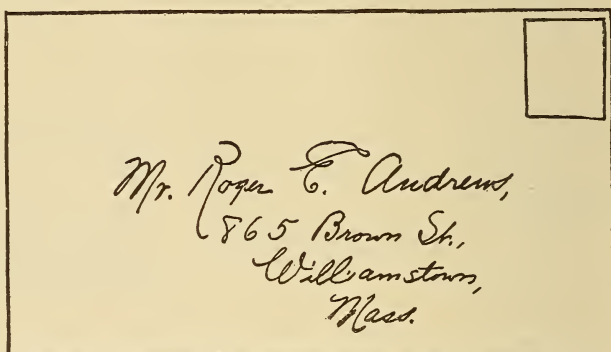 Mr. Roger E. Andrews,
865 Brown St.,
Williamstown,
Mass.